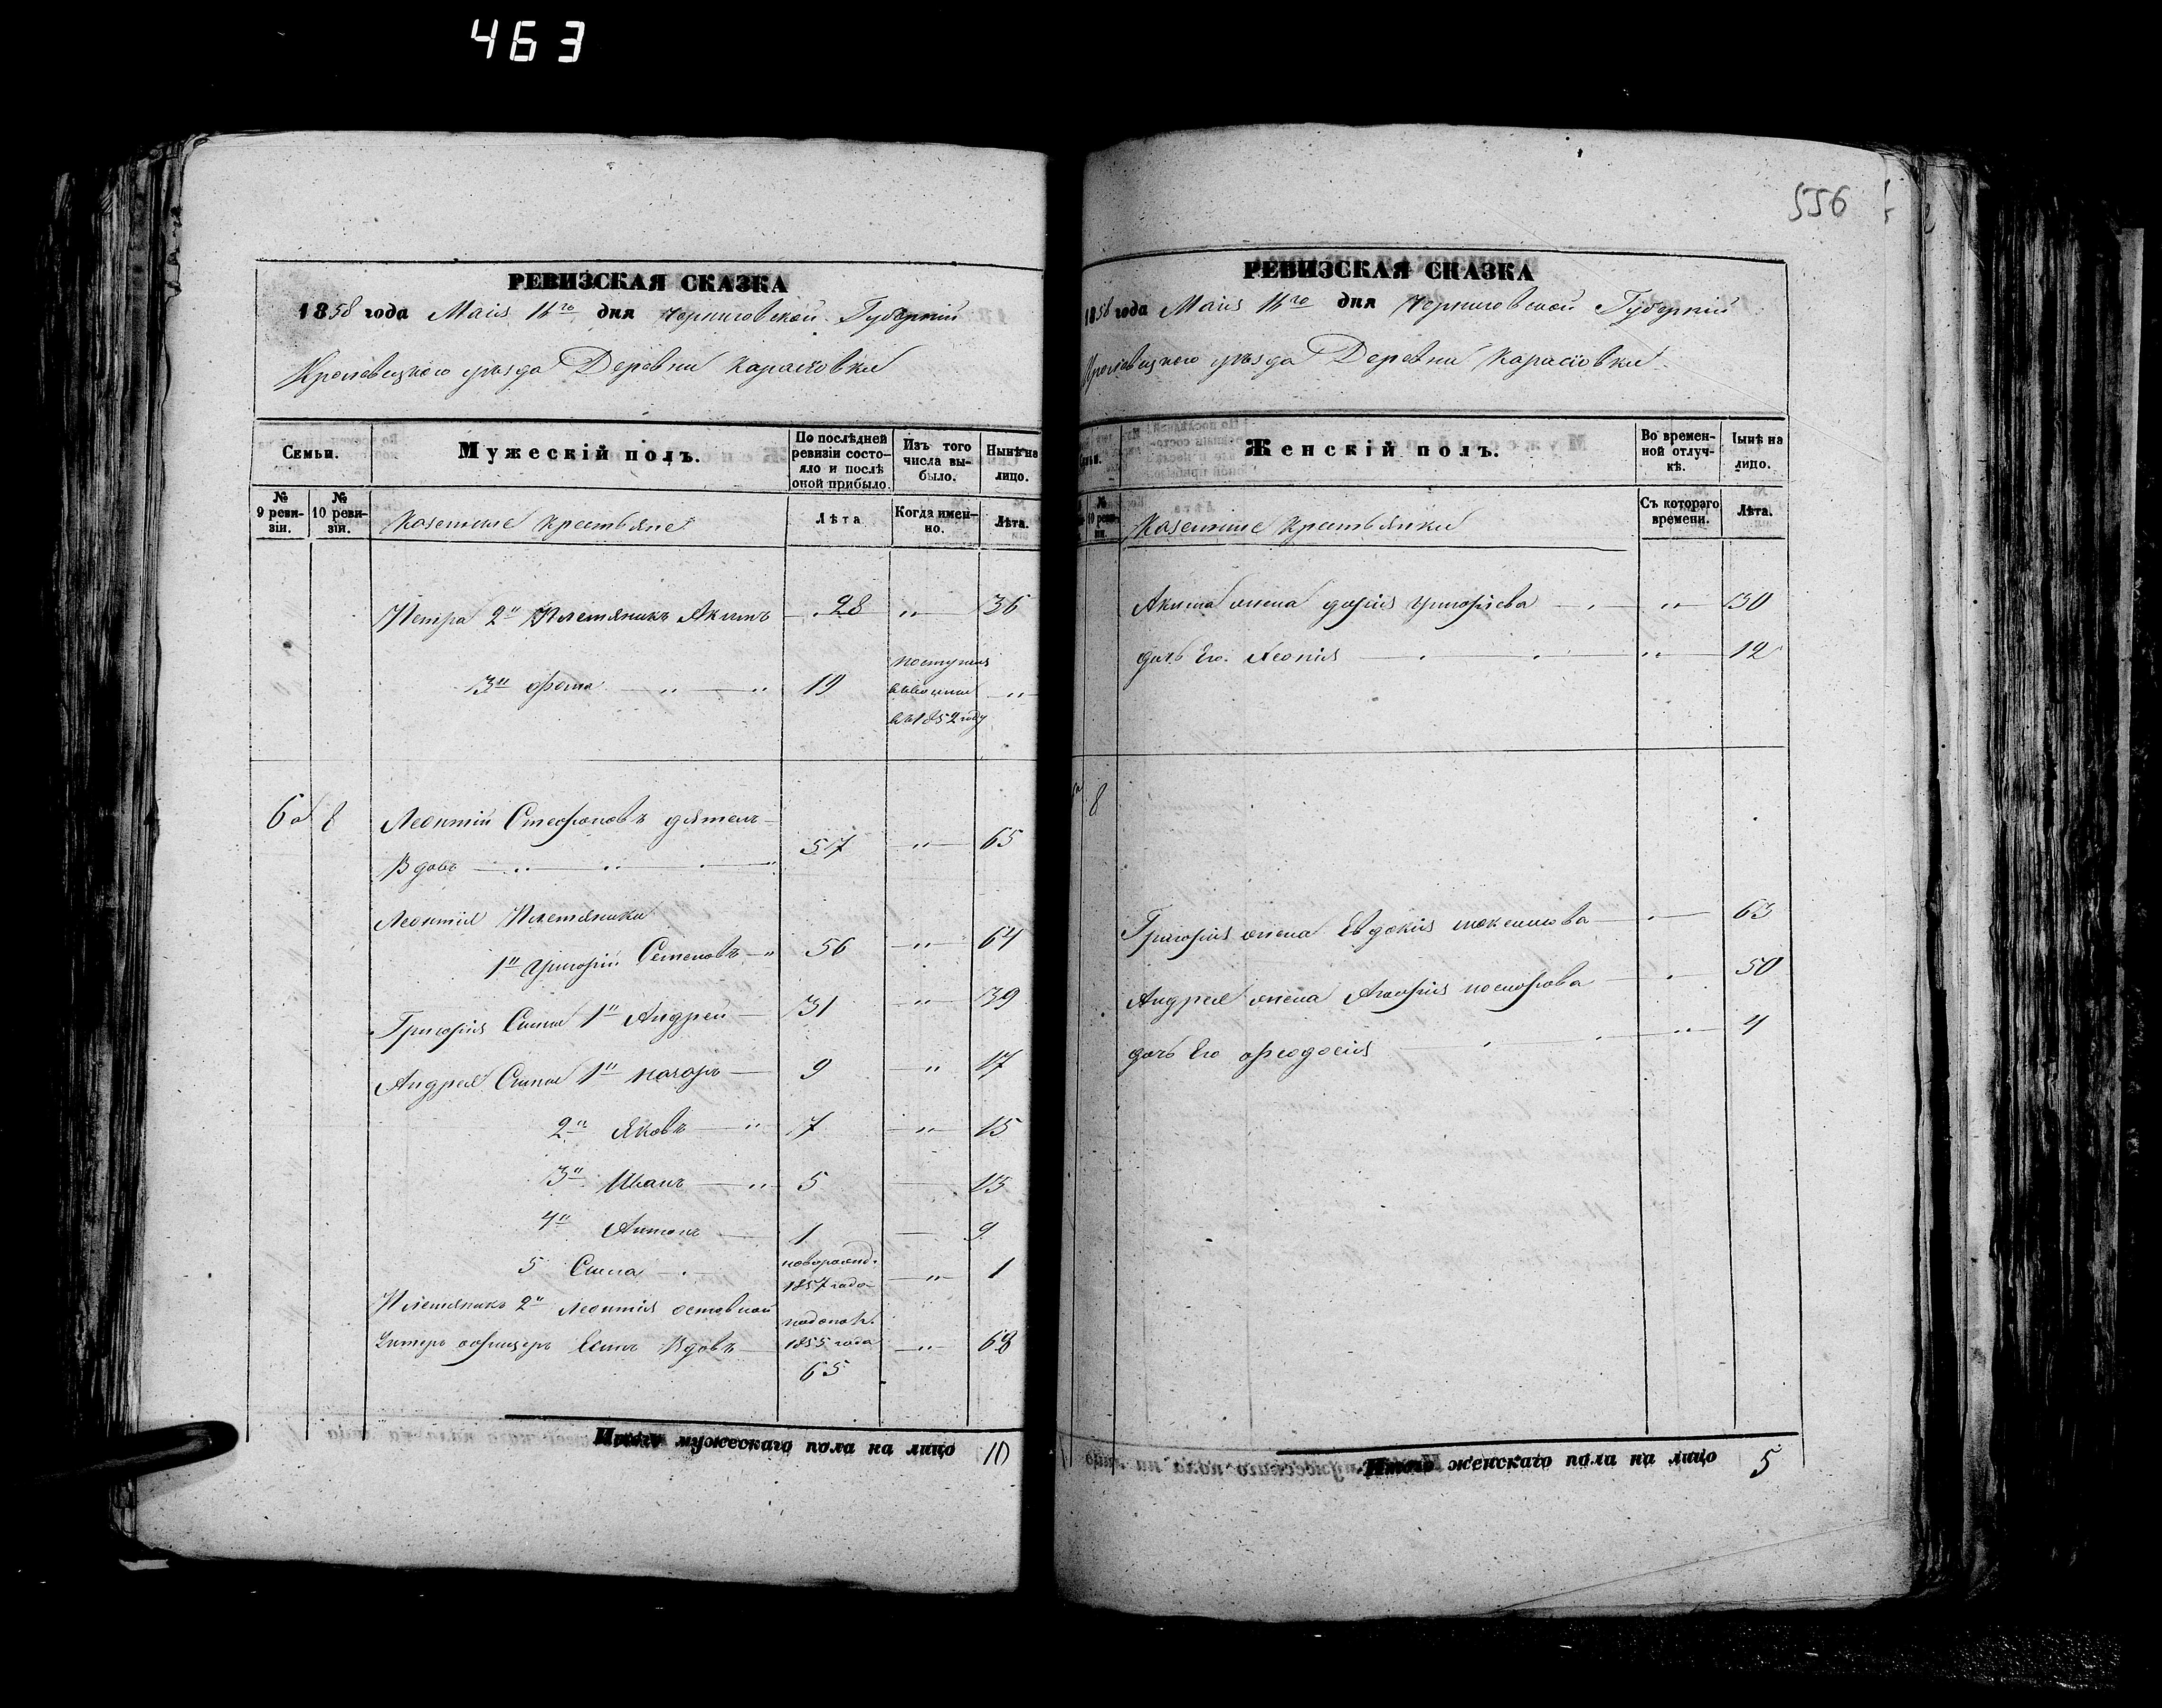 463
556
РЕВИЗСКАЯ СКАЗКА
1858 года Маія 16го дня Черниговской Губерніи
Кролевецкого уѣзда Деревни Карасіовки
Семьи.
Мужескій полъ.
По послѣдней ревизіи состояло и послѣ оной прибыло.
Изъ того числа выбыло.
Нынѣ на лицо.
№ 9 ревизіи.
№ 10 ревизіи.
Казенные крестьяне
Лѣта
Когда именно.
Лѣта.
Петра 2й Племяникъ Якимъ 28 " 36
3й фома " " 19 въ 1852 году "
8 Леонтій Стефановъ
Вдовъ 57 " 65
Леонтія Племяники
1й Григорій Семеновъ " 56 " 64
Григорія Сынъ 1й Андрей 31 " 39
Андрея Сыны 1й 9 " 17
2й Яковъ " 7 " 15
3й Иванъ " 5 13
4й Антонъ 1 9
5 Сила новорожд. 1857 года " 1
Племяникъ 2й Леонтія
Унтеръ офицеръ Вдовъ 1855 года 65 " 68
Итого мужескаго пола на лицо 10
РЕВИЗСКАЯ СКАЗКА
1858 года Маія 16го дня Черниговской Губерніи
Кролевецкого уѣзда Деревни Карасіовки
Женскій полъ.
Во временной отлучкѣ.
Нынѣ на лицо.
10 ревизіи.
Казенные крестьянки
Съ котораго времени.
Лѣта.
Акима жена дарія Григоріева " 30
дочь Его " 12
8
Григорія жена Евдокія 63
Андрея жена 50
дочь Его феодосія " 4
Итого женскаго пола на лицо 5